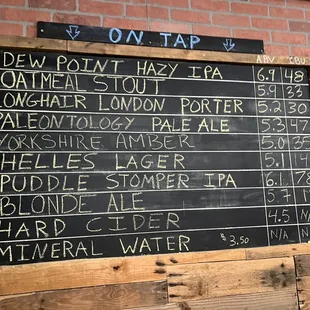 ON TAP
ABV IBU
DEW POINT HAZY IPA 6.9 48
OATMEAL STOUT 5.9 33
LONGHAIR LONDON PORTER 5.2 30
PALEONTOLOGY PALE ALE 5.3 47
YORKSHIRE AMBER 5.0 35
HELLES LAGER 5.1 14
PUDDLE STOMPER IPA 6.1 78
BLONDE ALE 5.7
HARD CIDER 4.5 N
MINERAL WATER $3.50 N/A N/A